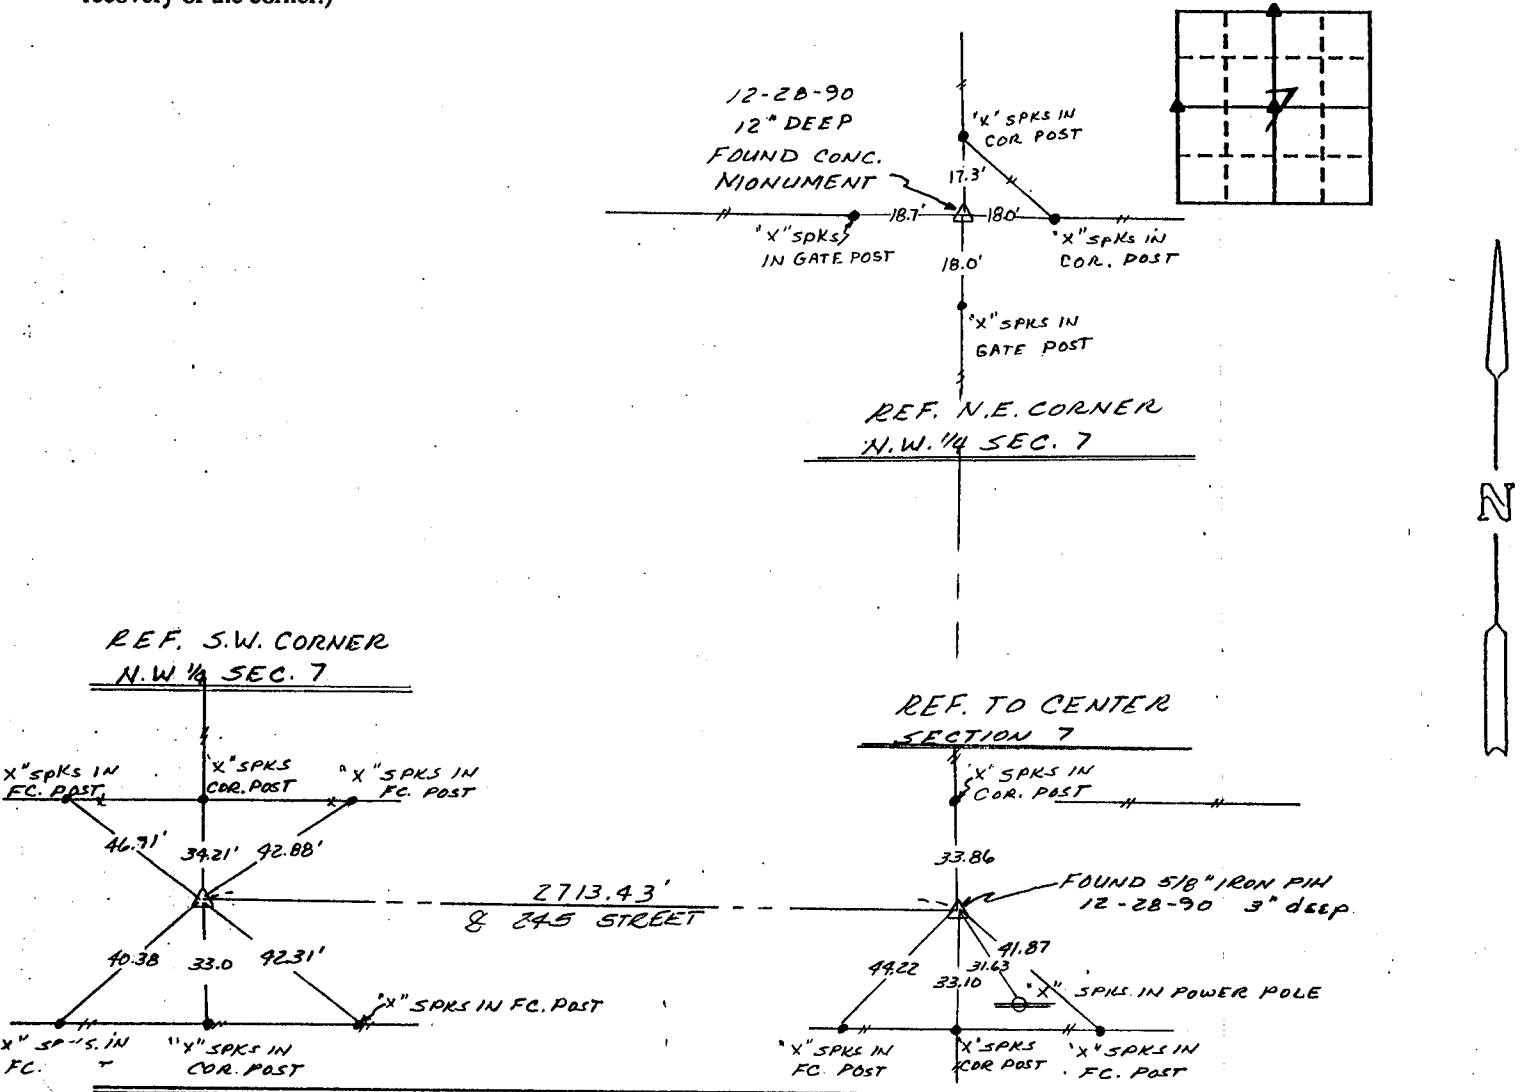 recovery of the corner.)
7
12-28-90
12" DEEP
FOUND CONC.
MONUMENT
"X" SPKS IN
COR POST
17.3'
18.7'
18.0'
"X" SPKS
IN GATE POST
"X" SPKS IN
COR. POST
18.0'
"X" SPKS IN
GATE POST
REF. N.E. CORNER
N.W. 1/4 SEC. 7
N
REF. S.W. CORNER
N.W 1/4 SEC. 7
X" SPKS IN
FC. POST
"X" SPKS
COR. POST
"X" SPKS IN
FC. POST
46.71'
34.21'
42.88'
2713.43'
245 STREET
40.38
33.0
42.31'
"X" SPKS IN FC. POST
X" SP S. IN
FC.
"X" SPKS IN
COR. POST
REF. TO CENTER
SECTION 7
"X" SPKS IN
COR. POST
33.86
FOUND 5/8" IRON PIN
12-28-90 3" deep
44.22
33.10
31.63
41.87
"X" SPKS IN POWER POLE
"X" SPKS IN
FC. POST
"X" SPKS
COR POST
"X" SPKS IN
FC. POST